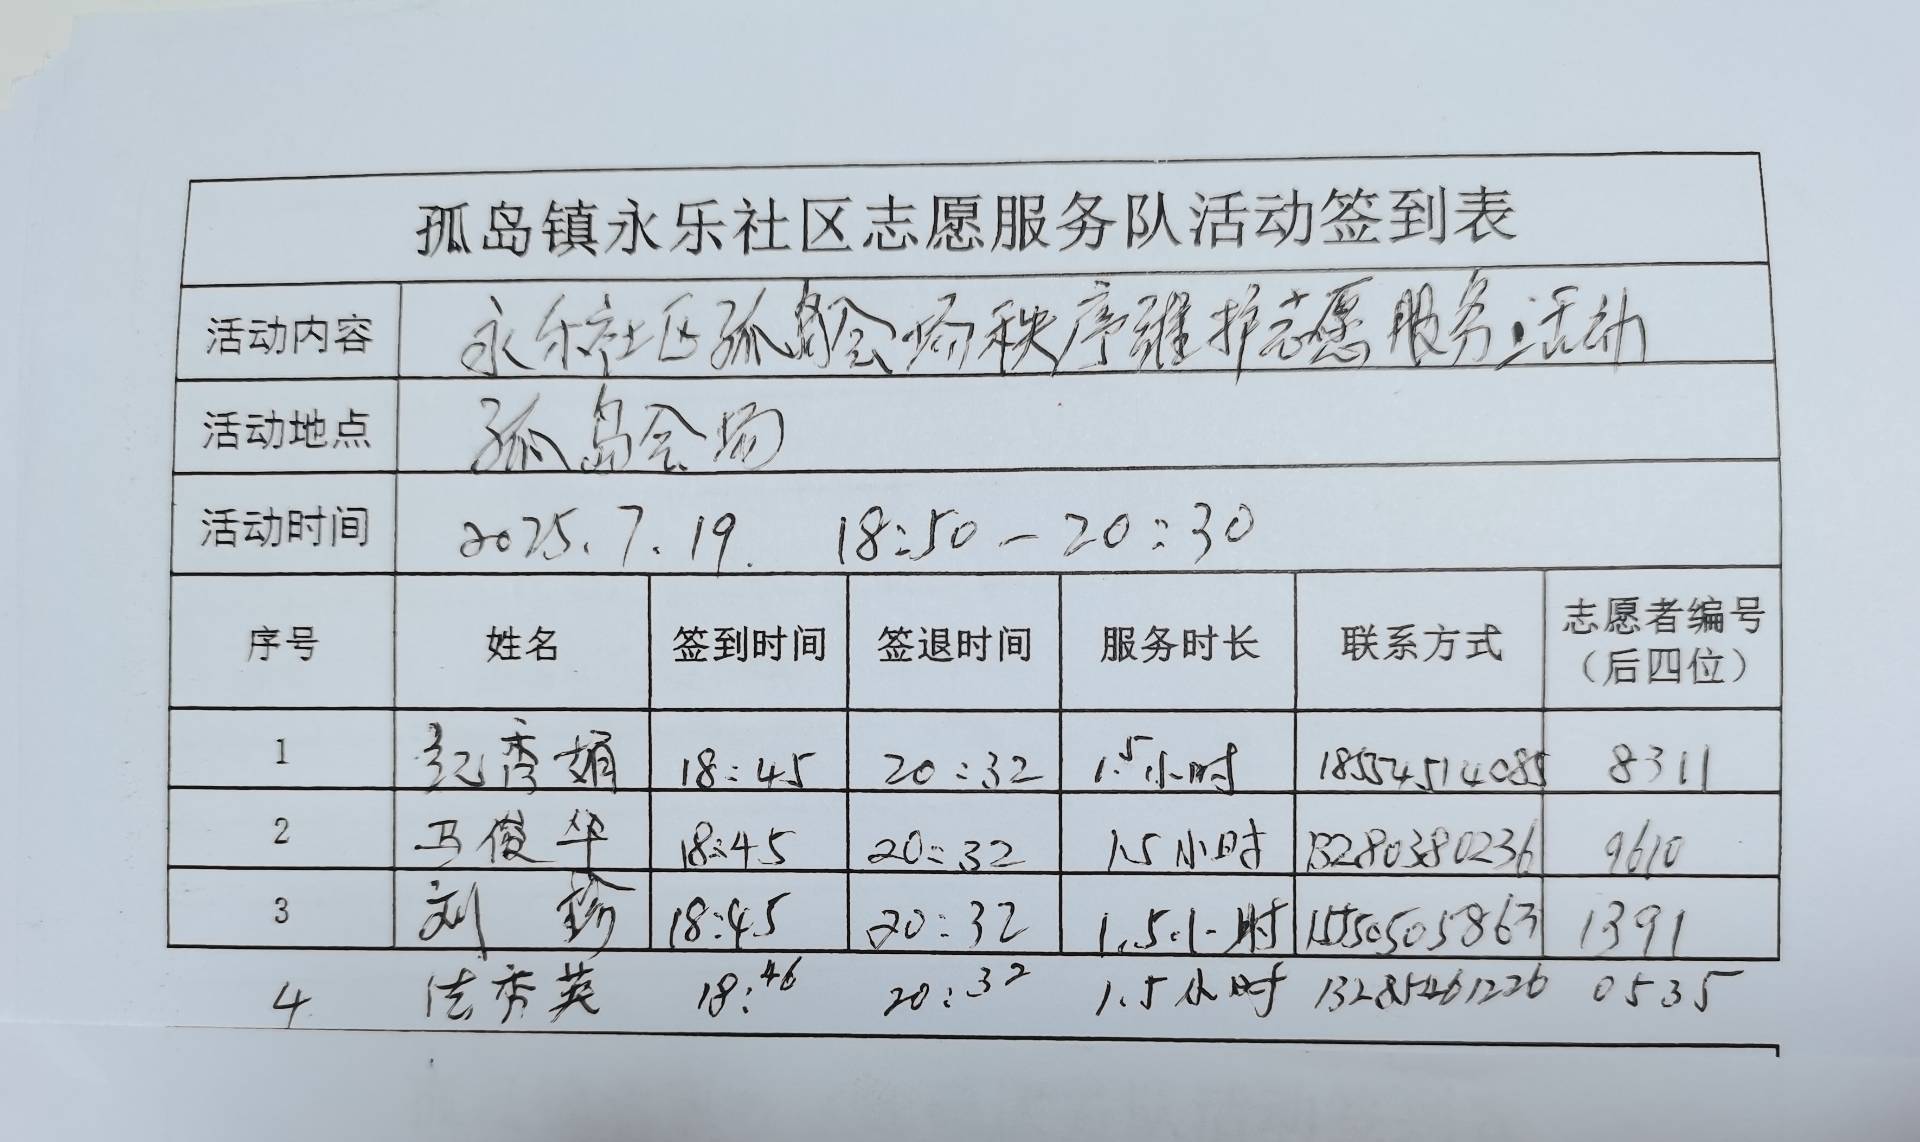 孤岛镇永乐社区志愿服务队活动签到表
活动内容 永乐社区孤岛会场秩序维护志愿服务活动
活动地点 孤岛会场
活动时间 2025.7.19. 18:50-20:30
序号 姓名 签到时间 签退时间 服务时长 联系方式 志愿者编号（后四位）
1 纪秀娟 18:45 20:32 1.5小时 18554514085 8311
2 马俊华 18:45 20:32 1.5小时 13280380236 9610
3 刘珍 18:45 20:32 1.5小时 15550505863 1391
4. 法秀英 18:46 20:32 1.5小时 13285461226 0535